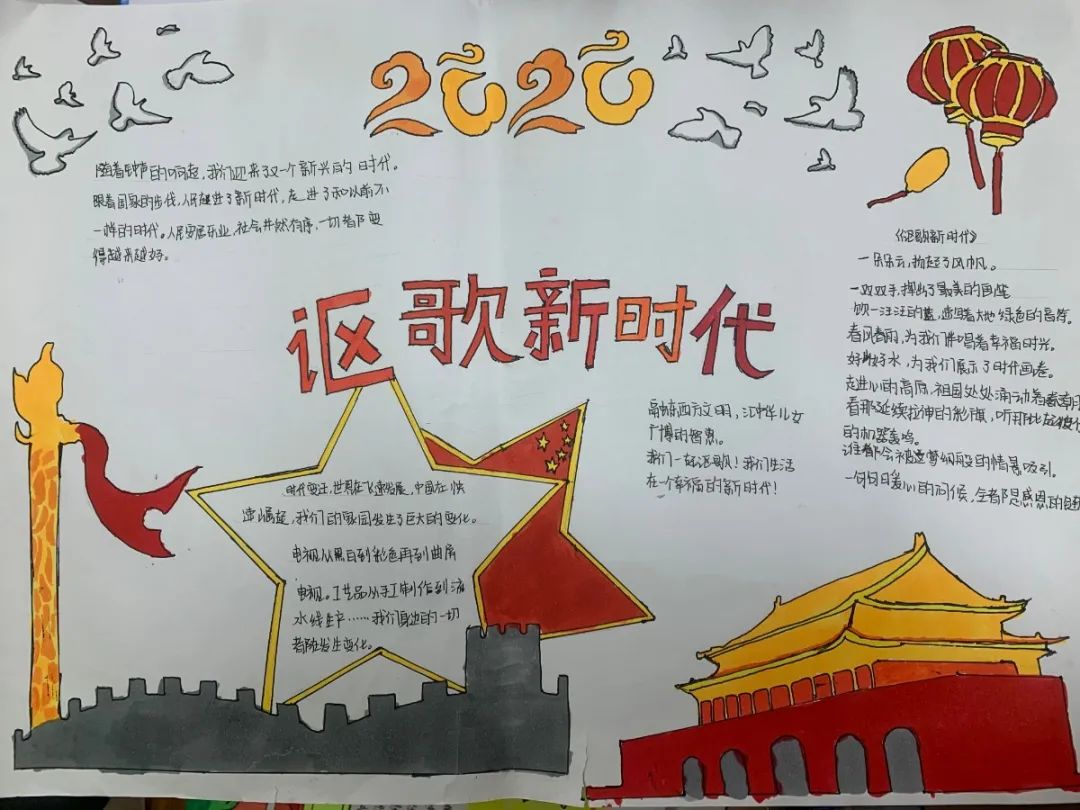 2020
随着钟声的响起,我们迎来了又一个新兴的时代。
跟着国家的步伐,人民越进了新时代,走进了和以前不
一样的时代。人民安居乐业,社会井然有序,一切都变
得越来越好。
讴歌新时代
时代变迁,世界在飞速发展,中国在快
速崛起,我们的家园发生了巨大的变化。
电视从黑白到彩色再到曲屏
电视。工艺品从手工制作到流
水线生产……我们身边的一切
都在发生变化。
融东西方文明,汇中华儿女
广博的智惠。
我们一起讴歌!我们生活
在一个幸福的新时代!
《讴歌新时代》
一朵朵云,扬起了风帆。
一双双手,撑出了最美的画
一汪汪的蓝,
春风春雨,为我们伴唱着幸福时光。
好山好水,为我们展示了时代画卷。
走进心的高原,祖国处处涌动着
看那延续拉伸的彩旗,听那
的机器轰鸣。
谁都会被这梦幻般的情景吸引。
一句句暖心的问候,全都是感恩的